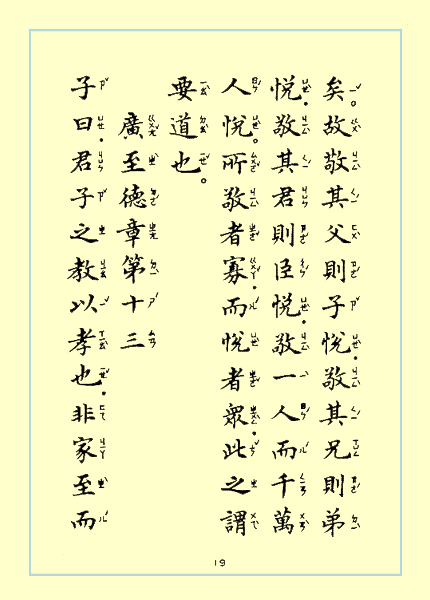 矣。故敬其父則子悅。敬其兄則弟
悅。敬其君則臣悅。敬一人而千萬
人悅。所敬者寡。而悅者眾。此之謂
要道也。
廣至德章第十三
子曰。君子之教以孝也。非家至而
19